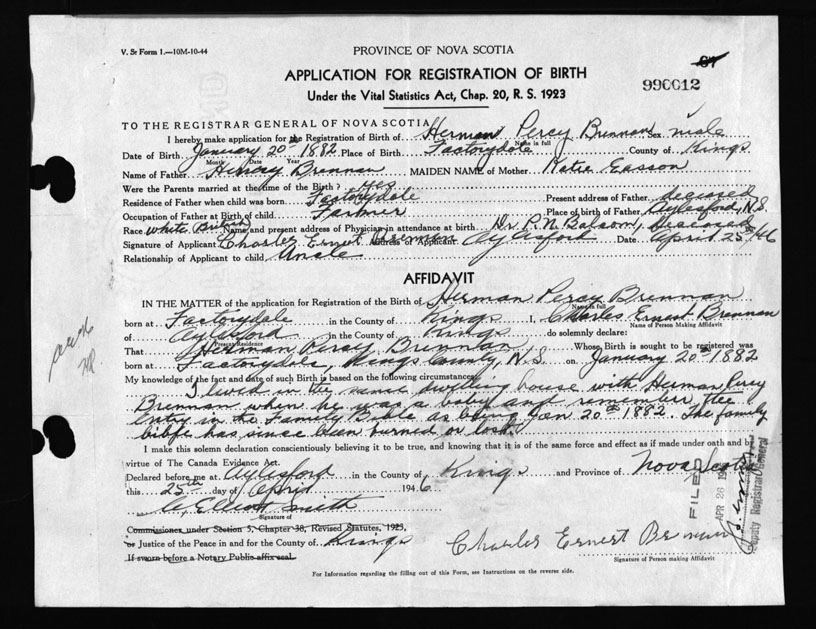 V. Sr Form 1.—10M-10-44
PROVINCE OF NOVA SCOTIA
APPLICATION FOR REGISTRATION OF BIRTH
Under the Vital Statistics Act, Chap. 20, R. S. 1923
990012
TO THE REGISTRAR GENERAL OF NOVA SCOTIA
I hereby make application for the Registration of Birth of Herman Percy Brennan Sex male
Name in full
Date of Birth January 20th 1882 Place of Birth Factorydale County of Kings
Month Date Year
Name of Father Henry Brennan MAIDEN NAME of Mother Katie Easson
Were the Parents married at the time of the Birth? yes
Residence of Father when child was born Factorydale Present address of Father deceased
Occupation of Father at Birth of child Farmer Place of birth of Father Aylesford, N.S.
Race white British Name and present address of Physician in attendance at birth Dr. P.N. Balsom, deceased
Signature of Applicant Charles Ernest Brennan Address of Applicant Aylesford Date April 25th/46
Relationship of Applicant to child Uncle
AFFIDAVIT
IN THE MATTER of the application for Registration of the Birth of Herman Percy Brennan
Name in full
born at Factorydale in the County of Kings I, Charles Ernest Brennan
Name of Person Making Affidavit
of Aylesford in the County of Kings do solemnly declare:
Present Residence
That Herman Percy Brennan Whose Birth is sought to be registered was
born at Factorydale, Kings County, N.S. on January 20th 1882
My knowledge of the fact and date of such Birth is based on the following circumstances
I lived in the same dwelling house with Herman Percy
Brennan when he was a baby and remember the
entry in the Family Bible as being Jan 20th 1882. The family
bible has since been burned or lost.
I make this solemn declaration conscientiously believing it to be true, and knowing that it is of the same force and effect as if made under oath and by
virtue of The Canada Evidence Act.
Declared before me at Aylesford in the County of Kings and Province of Nova Scotia
this 25th day of April 1946
C. Elliott Smith
Signature of
Commissioner under Section 5, Chapter 38, Revised Statutes, 1923,
or Justice of the Peace in and for the County of Kings
If sworn before a Notary Public affix seal.
Charles Ernest Brennan
Signature of Person making Affidavit
FILED
APR 26
Deputy Registrar General
For Information regarding the filling out of this Form, see Instructions on the reverse side.